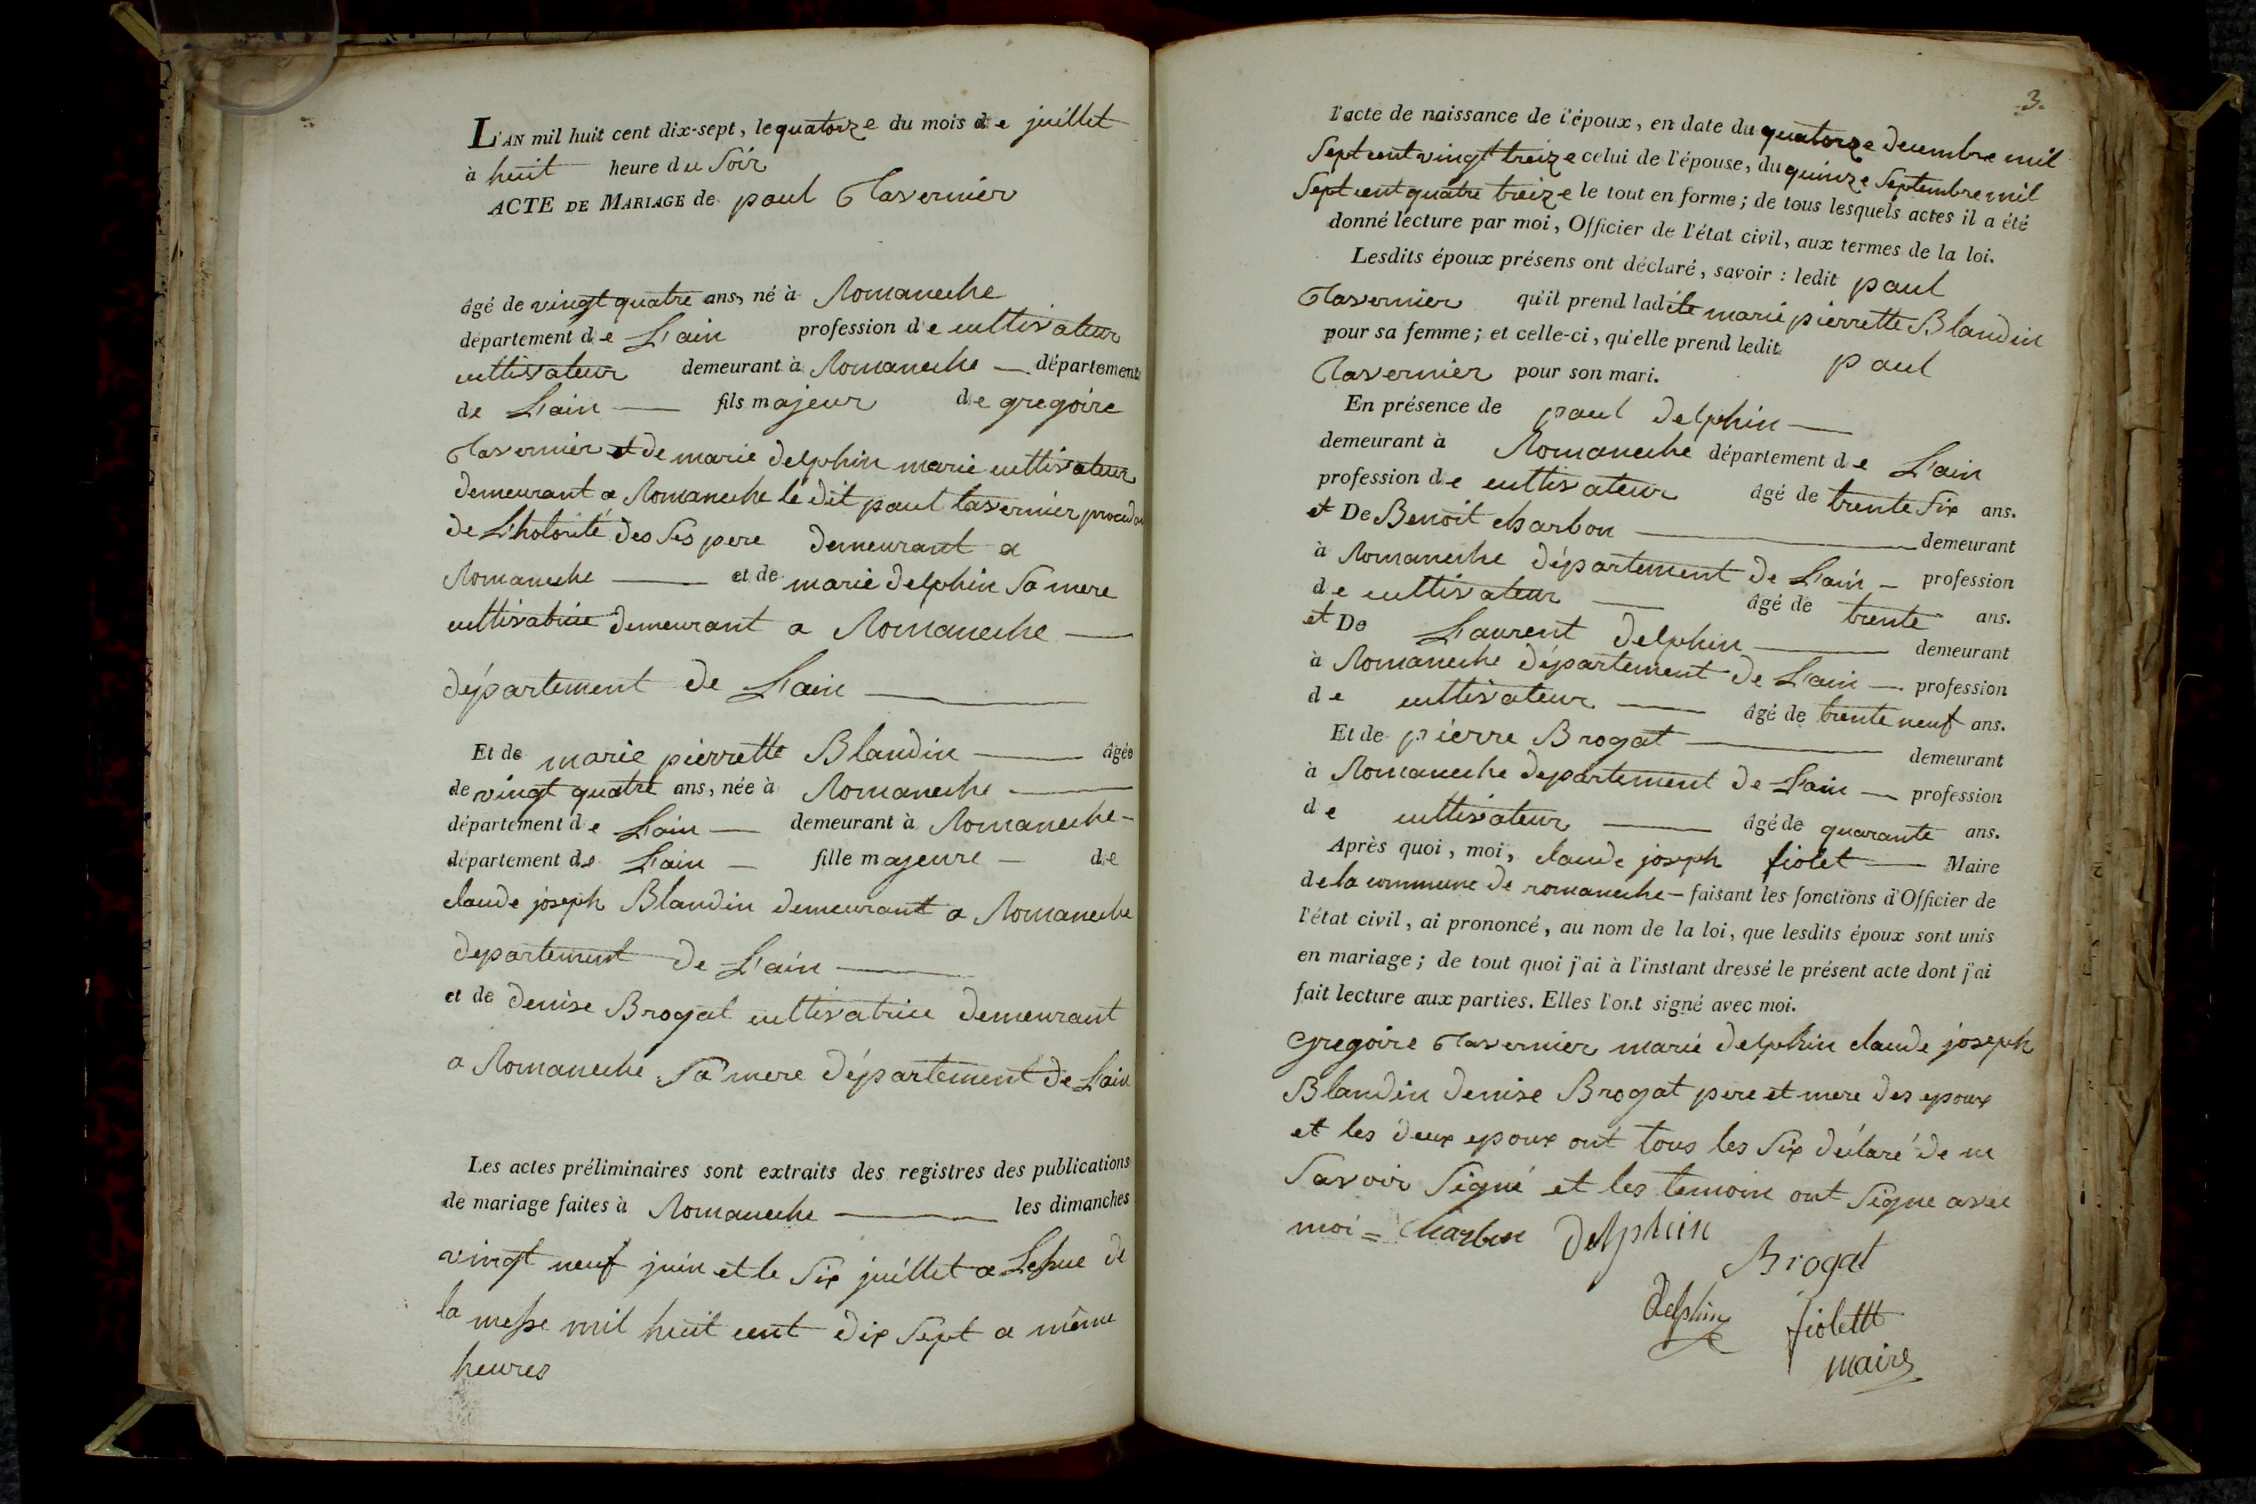 L'AN mil huit cent dix-sept, le quatorze du mois de juillet
à huit heure du Soir
ACTE DE MARIAGE de paul Tavernier
âgé de vingt quatre ans, né à Romaneche
département de L'ain profession de cultivateur
cultivateur demeurant à Romaneche — département
de L'ain — fils majeur de gregoire
Tavernier et de marie delphin marie cultivateur
demeurant a Romaneche le dit paul tavernier
de L'hotorité des Ses pere demeurant a
Romaneche — et de marie delphin Sa mere
cultivatrice demeurant a Romaneche —
département de L'ain —
Et de marie pierrette Blandin — âgée
de vingt quatre ans, née à Romaneche —
département de L'ain — demeurant à Romaneche -
département de L'ain — fille majeure — de
claude joseph Blandin demeurant a Romaneche
departement de L'ain —
et de denise Brogat cultivatrice demeurant
a Romaneche Sa mere département de L'ain
Les actes préliminaires sont extraits des registres des publications
de mariage faites à Romaneche — les dimanches
vingt neuf juin et le Six juillet a de
la messe mil huit cent dix Sept a même
heures
3.
l'acte de naissance de l'époux, en date du quatorze decembre mil
Sept cent vingt treize celui de l'épouse, du quinze Septembre mil
Sept cent quatre treize le tout en forme; de tous lesquels actes il a été
donné lecture par moi, Officier de l'état civil, aux termes de la loi.
Lesdits époux présens ont déclaré, savoir : ledit paul
Tavernier qu'il prend ladite marie pierrette Blandin
pour sa femme; et celle-ci, qu'elle prend ledit paul
Tavernier pour son mari.
En présence de paul delphin —
demeurant à Romaneche département de L'ain
profession de cultivateur âgé de trente Six ans.
et De Benoit charbon — demeurant
à Romaneche département de L'ain — profession
de cultivateur — âgé de trente ans.
et De Laurent delphin — demeurant
à Romaneche département de L'ain — profession
de cultivateur — âgé de trente neuf ans.
Et de pierre Brogat — demeurant
à Romaneche departement de L'ain — profession
de cultivateur — âgé de quarante ans.
Après quoi, moi, claude joseph fiolet — Maire
de la commune de romaneche — faisant les fonctions d'Officier de
l'état civil, ai prononcé, au nom de la loi, que lesdits époux sont unis
en mariage; de tout quoi j'ai à l'instant dressé le présent acte dont j'ai
fait lecture aux parties. Elles l'ont signé avec moi.
Gregoire Tavernier marie delphin claude joseph
Blandin denise Brogat pere et mere des epoux
et les deux epoux ont tous les Six déclaré de ne
Savoir Signé et les temoin ont Signe avec
moi = Charbon Delphin
Brogat
delphin fiolettt
maire